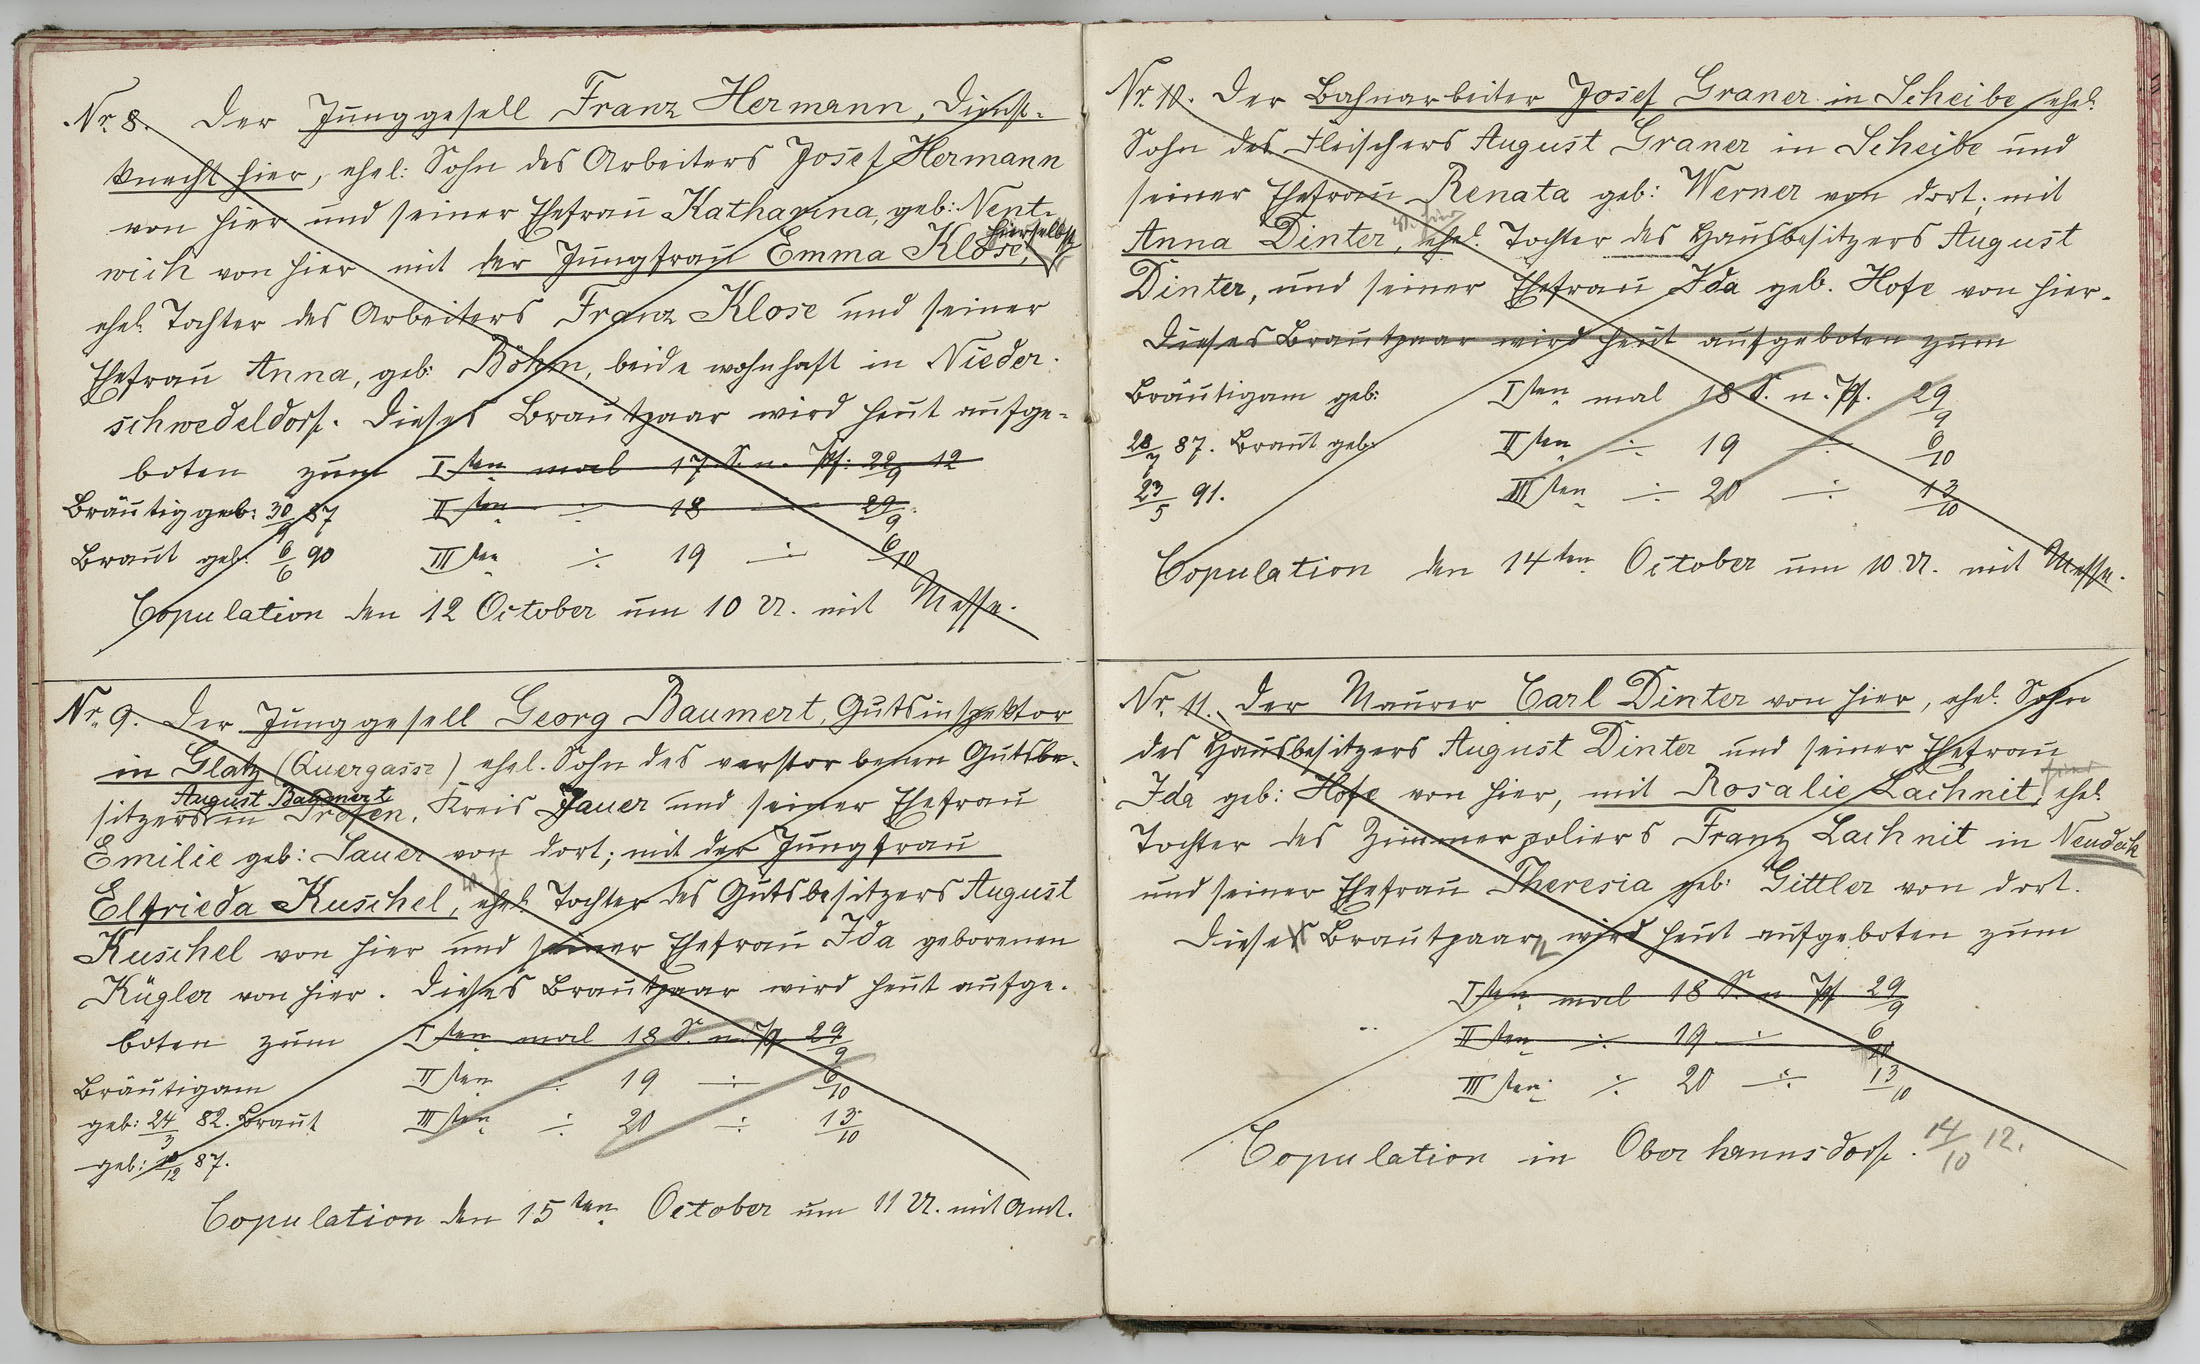 Nr. 8. Der Junggesell Franz Hermann, Dienst-
knecht hier, ehel: Sohn des Arbeiters Josef Hermann
von hier und seiner Ehefrau Katharina, geb: Nent-
hierselbst
wich von hier mit der Jungfrau Emma Klose,
ehel. Tochter des Arbeiters Franz Klose und seiner
Ehefrau Anna, geb: Böhm, beide wohnhaft in Nieder-
schwedeldorf. Dieses Brautpaar wird heut aufge-
boten zum Isten mal 17 S. n. Pf: 22/9 12
Bräutig geb: 30/9 87 IIsten ÷ 18 ÷ 29/9.
Braut geb. 6/6 90 IIIten ÷ 19 ÷ 6/10
Copulation den 12 October um 10 U. mit Messe.
Nr. 9. Der Junggesell Georg Baumert, Gutsinspektor
in Glatz (Quergasse) ehel. Sohn des verstorbenen Gutsbe-
August Baumert
sitzers in Profen, Kreis Jauer und seiner Ehefrau
Emilie geb: Sauer von dort; mit der Jungfrau
Elfrieda Kuschel, ehel. Tochter des Gutsbesitzers August
Kuschel von hier und seiner Ehefrau Ida geborenen
Kügler von hier. Dieses Brautpaar wird heut aufge-
boten zum Isten mal 18 S. n. Pf 29/9
Bräutigam IIsten ÷ 19 ÷ 6/10
geb: 24/3 82. Braut IIIsten ÷ 20 ÷ 13/10
geb: 10/12 87.
Copulation den 15ten October um 11 U. mit Amt.
Nr. 10. Der Bahnarbeiter Josef Graner in Scheibe ehel.
Sohn des Fleischers August Graner in Scheibe und
seiner Ehefrau Renata geb: Werner von dort; mit
v. hier
Anna Dinter, ehel. Tochter des Hausbesitzers August
Dinter, und seiner Ehefrau Ida geb. Hofe von hier.
Dieses Brautpaar wird heut aufgeboten zum
Bräutigam geb: Isten mal 18 S. n. Pf. 29/9
28/7 87. Braut geb: IIsten ÷ 19 ÷ 6/10
23/5 91. IIIsten ÷ 20 ÷ 13/10
Copulation den 14ten October um 10 U. mit Messe.
Nr. 11. Der Maurer Carl Dinter von hier, ehel. Sohn
des Hausbesitzers August Dinter und seiner Ehefrau
Ida geb: Hofe von hier, mit Rosalie Lachnit, ehel.
Tochter des Zimmerpoliers Franz Lachnit in Neudeck
und seiner Ehefrau Theresia geb: Gittler von dort.
Dieses Brautpaar wird heut aufgeboten zum
Isten mal 18 S. n Pf 29/9
IIsten ÷ 19 ÷ 6/10
IIIsten ÷ 20 ÷ 13/10
Copulation in Oberhannsdorf. 14/10 12.